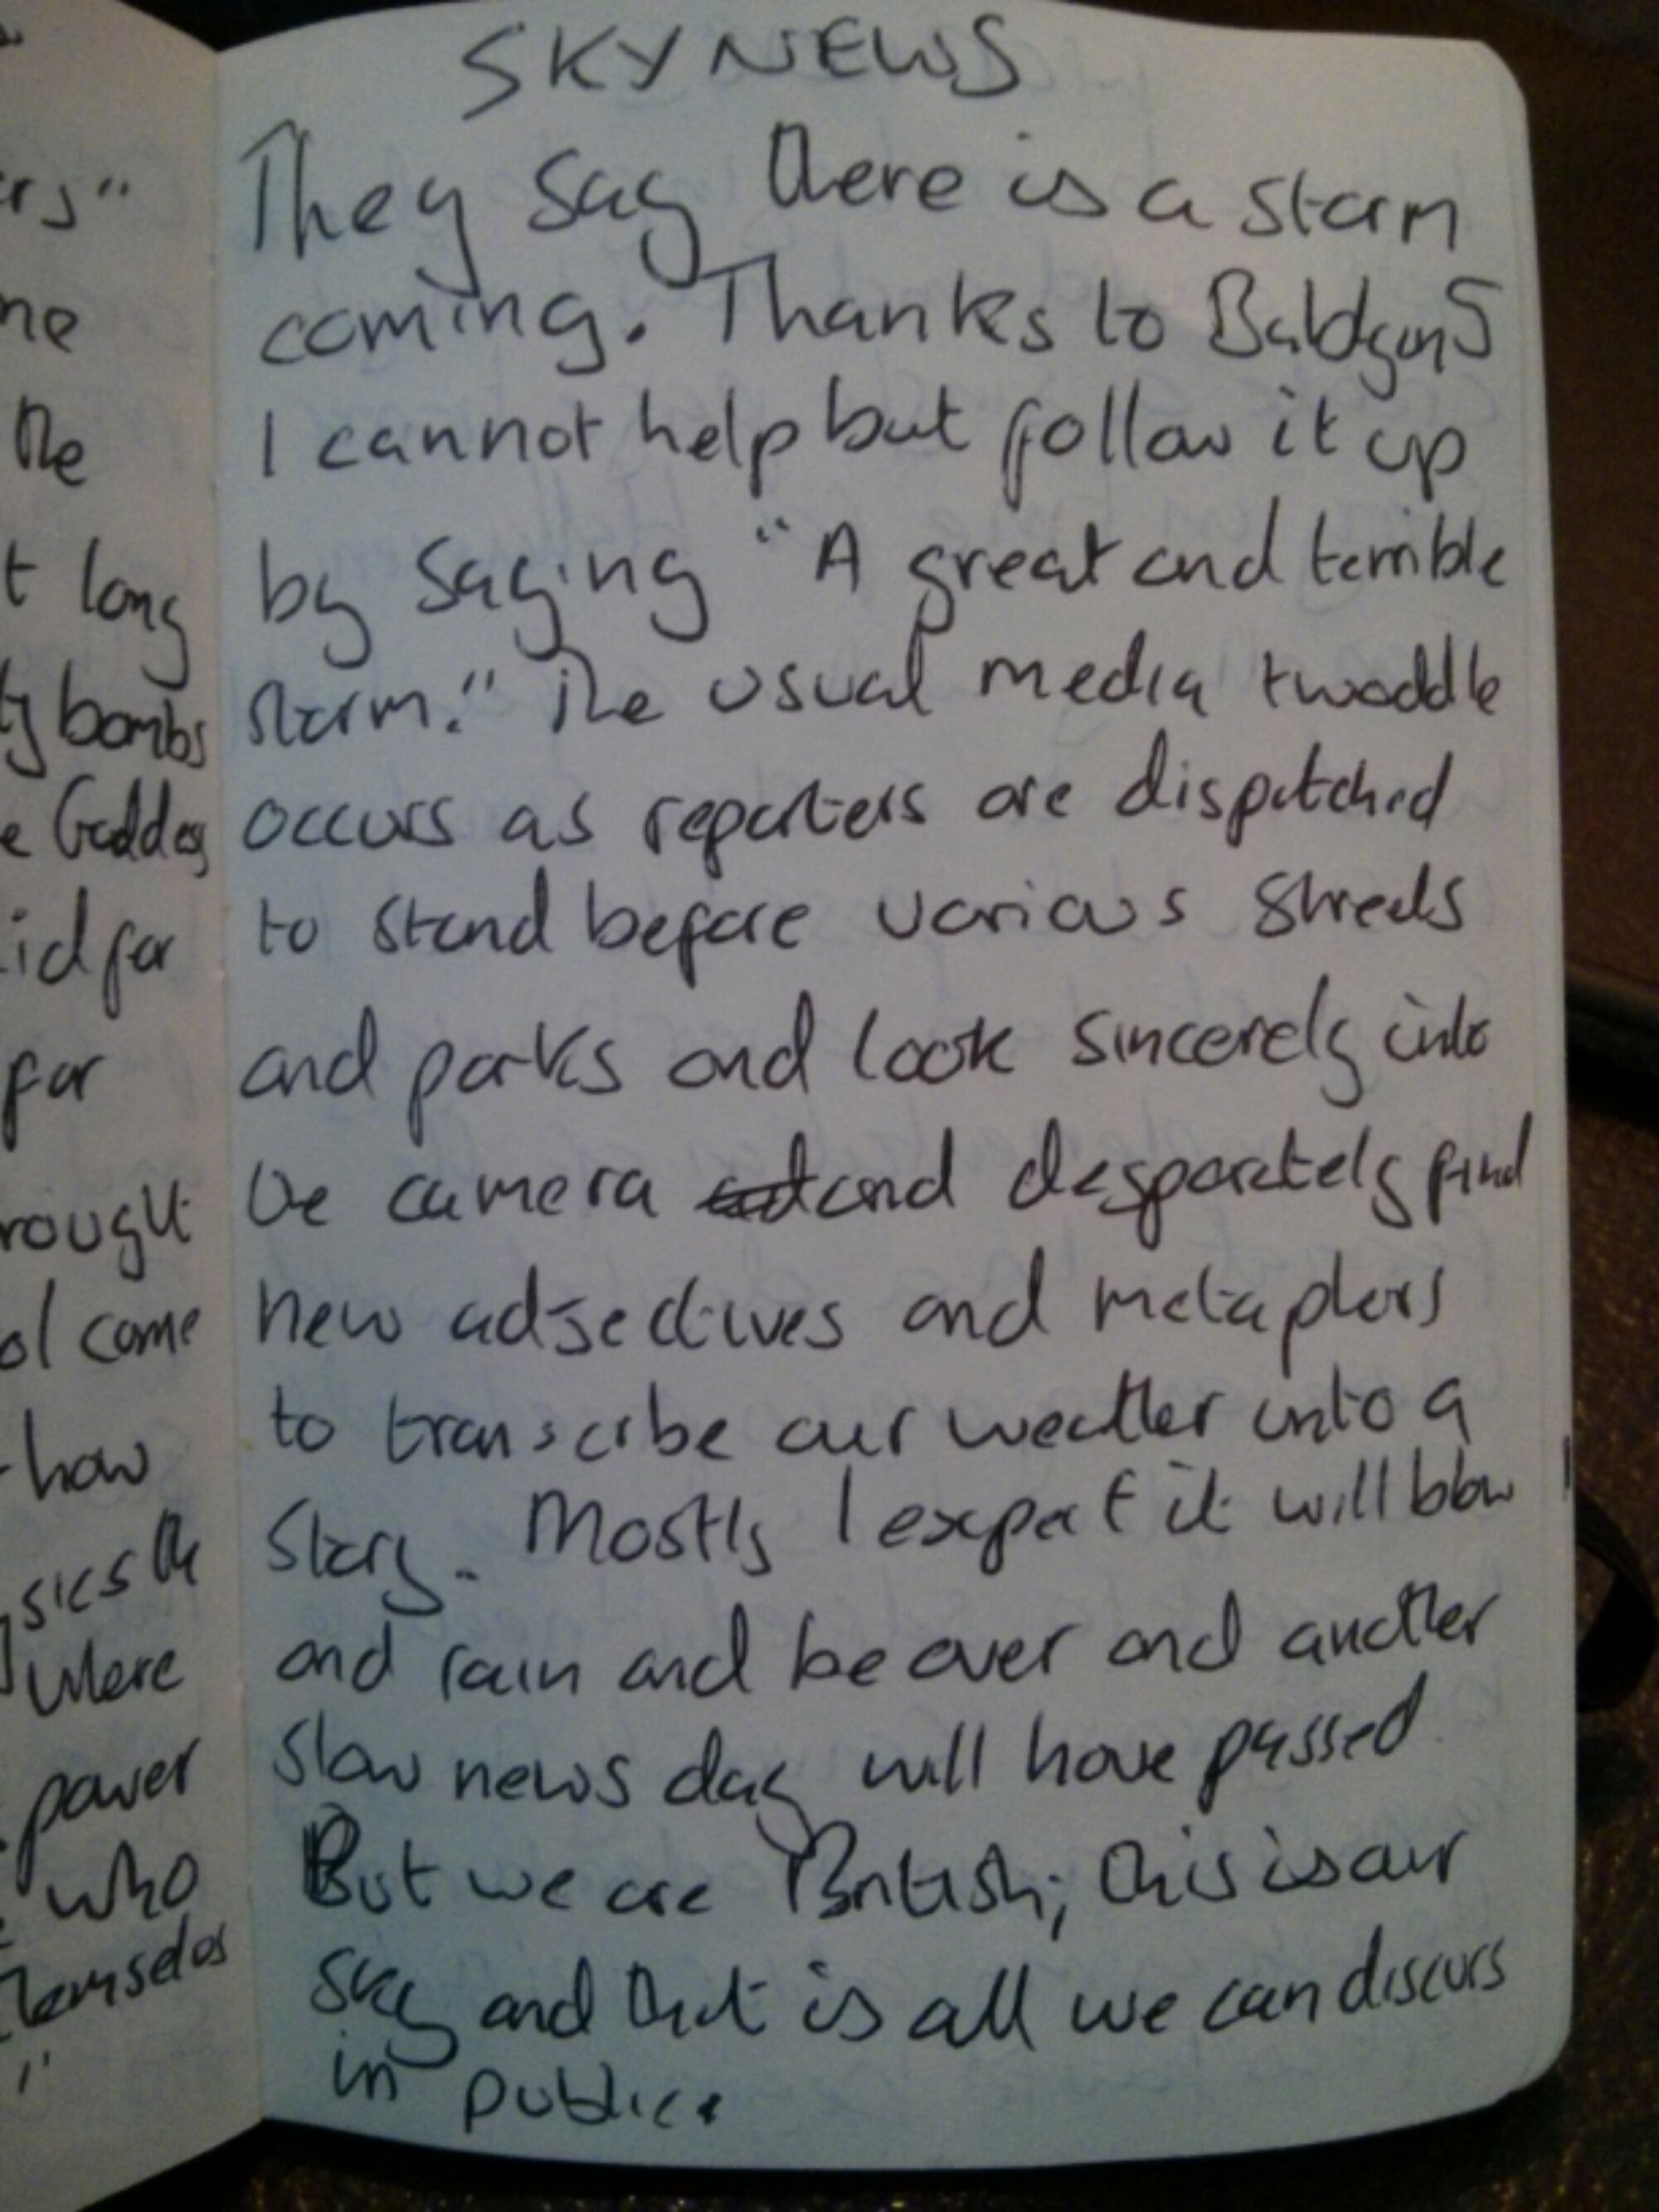 SKY NEWS
They say there is a storm
coming. Thanks to Babylon 5
I cannot help but follow it up
by saying "A great and terrible
storm." The usual media twaddle
occurs as reporters are dispatched
to stand before various streets
and parks and look sincerely into
the camera and desparately find
new adjectives and metaphors
to transcribe our weather into a
story. Mostly I expect it will blow
and rain and be over and another
slow news day will have passed
But we are British; this is our
sky and that is all we can discuss
in public.
ne
the
t long
bombs
e Goddess
for
for
come
how
the
where
power
who